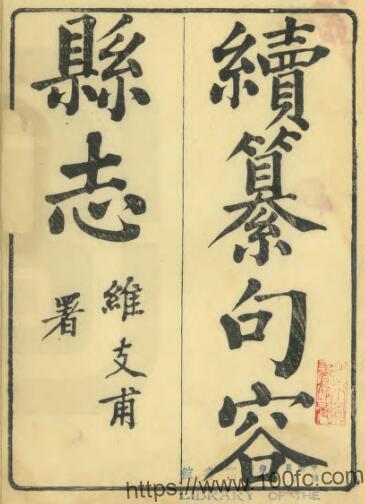 續纂句容
縣志
維支甫
署
https://www.100fc.com
LIBRARY OF THE